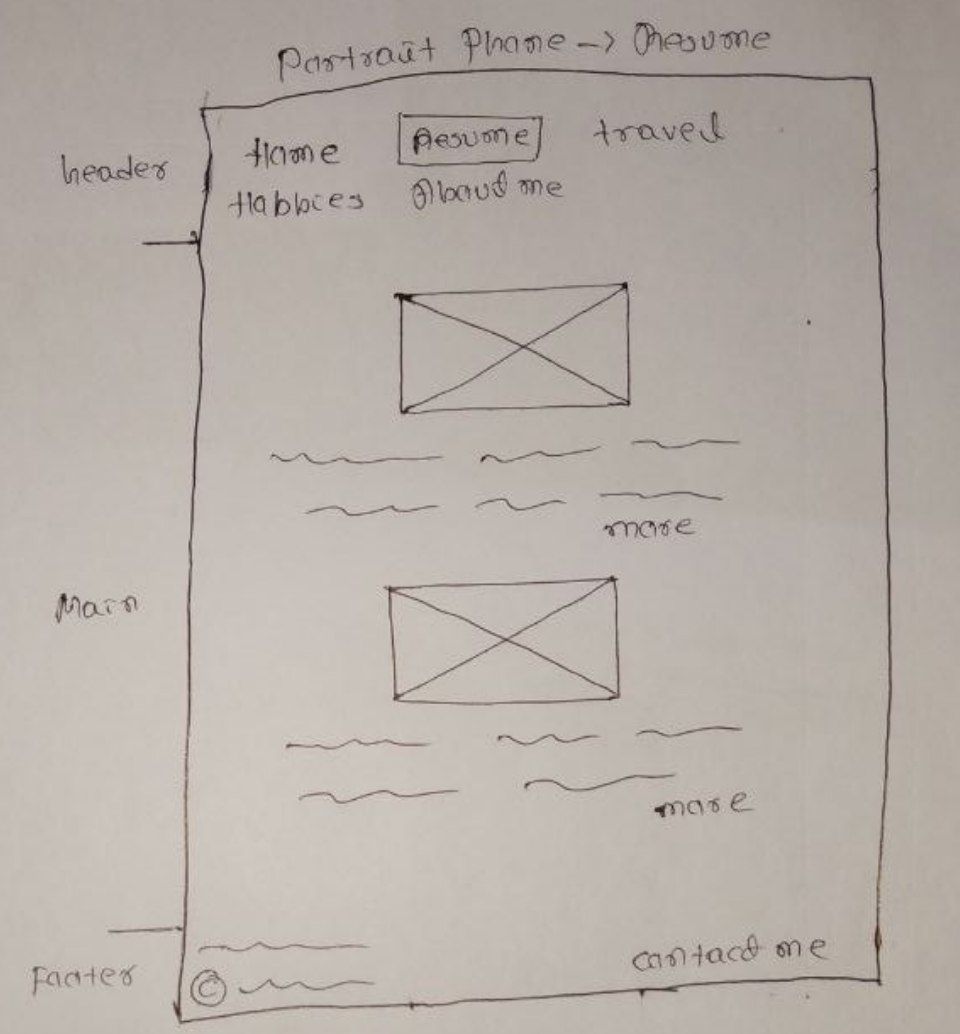 Portrait Phone -> Resume
header
Home Resume travel
Hobbies About me
more
Main
more
Footer
contact me
©